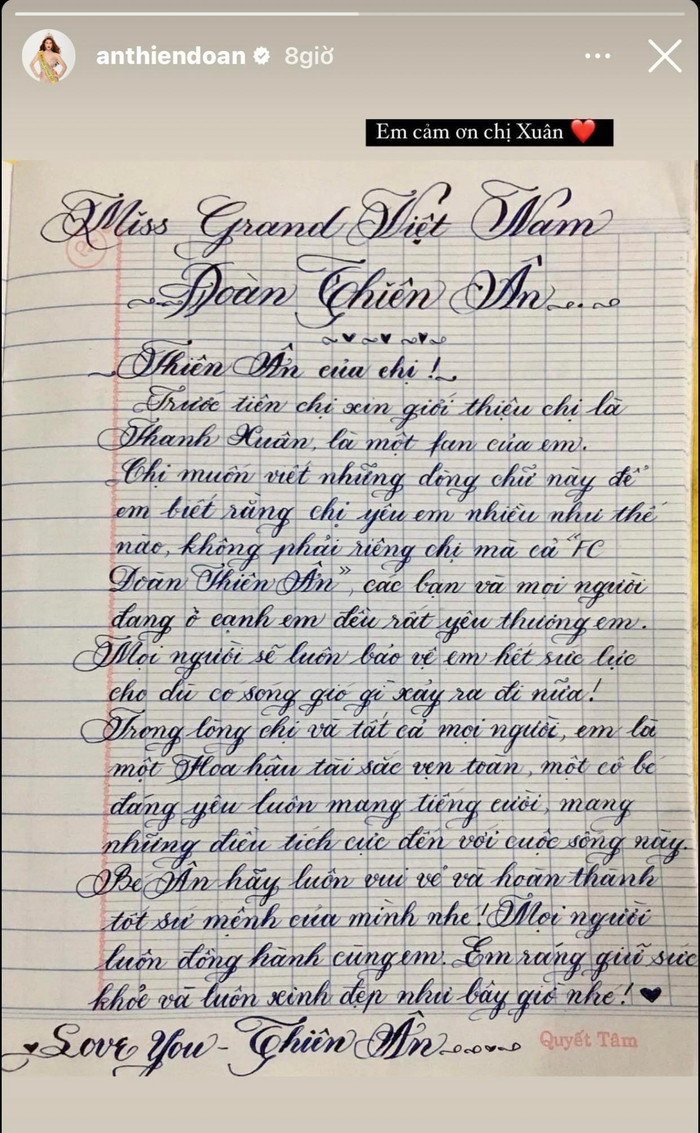 anthiendoan 8giờ
Em cảm ơn chị Xuân ❤️
Miss Grand Việt Nam
Đoàn Thiên Ân
Thiên Ân của chị!
Trước tiên chị xin giới thiệu chị là
Thanh Xuân, là một fan của em.
Chị muốn viết những dòng chữ này để
em biết rằng chị yêu em nhiều như thế
nào, không phải riêng chị mà cả "FC
Đoàn Thiên Ân", các bạn và mọi người
đang ở cạnh em đều rất yêu thương em.
Mọi người sẽ luôn bảo vệ em hết sức lực
cho dù có sóng gió gì xảy ra đi nữa!
Trong lòng chị và tất cả mọi người, em là
một Hoa hậu tài sắc vẹn toàn, một cô bé
đáng yêu luôn mang tiếng cười, mang
những điều tích cực đến với cuộc sống này.
Bé Ân hãy luôn vui vẻ và hoàn thành
tốt sứ mệnh của mình nhé! Mọi người
luôn đồng hành cùng em. Em ráng giữ sức
khỏe và luôn xinh đẹp như bây giờ nhé! ♥
Love You - Thiên Ân
Quyết Tâm